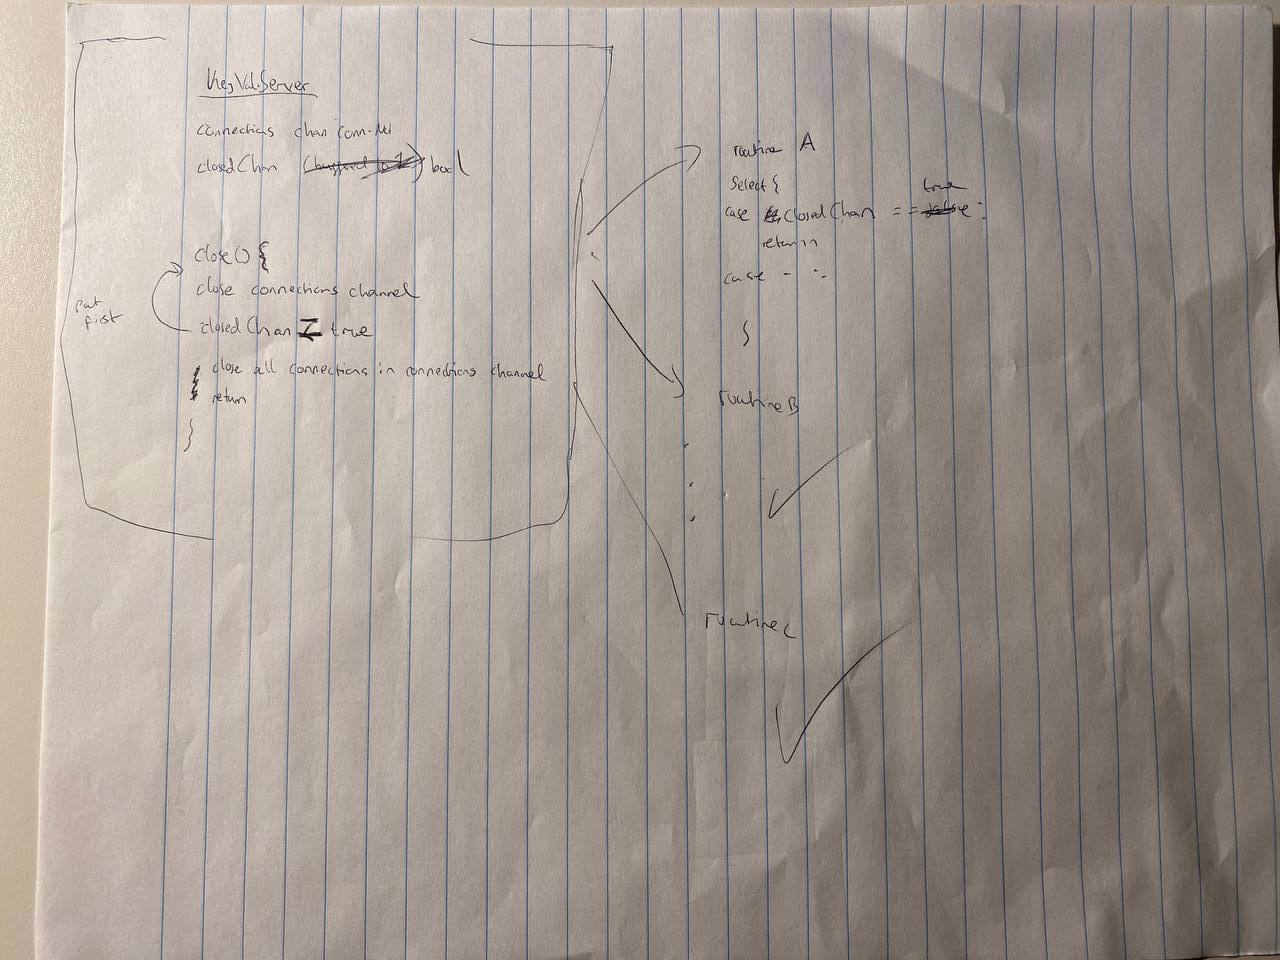 KeyValServer
connections chan conn
closedChan bool
close() {
close connections channel
put
first
closedChan = true
close all connections in connections channel
return
}
routine A
Select {
true
case closedChan == :
return
case - :
}
routine B
routine C